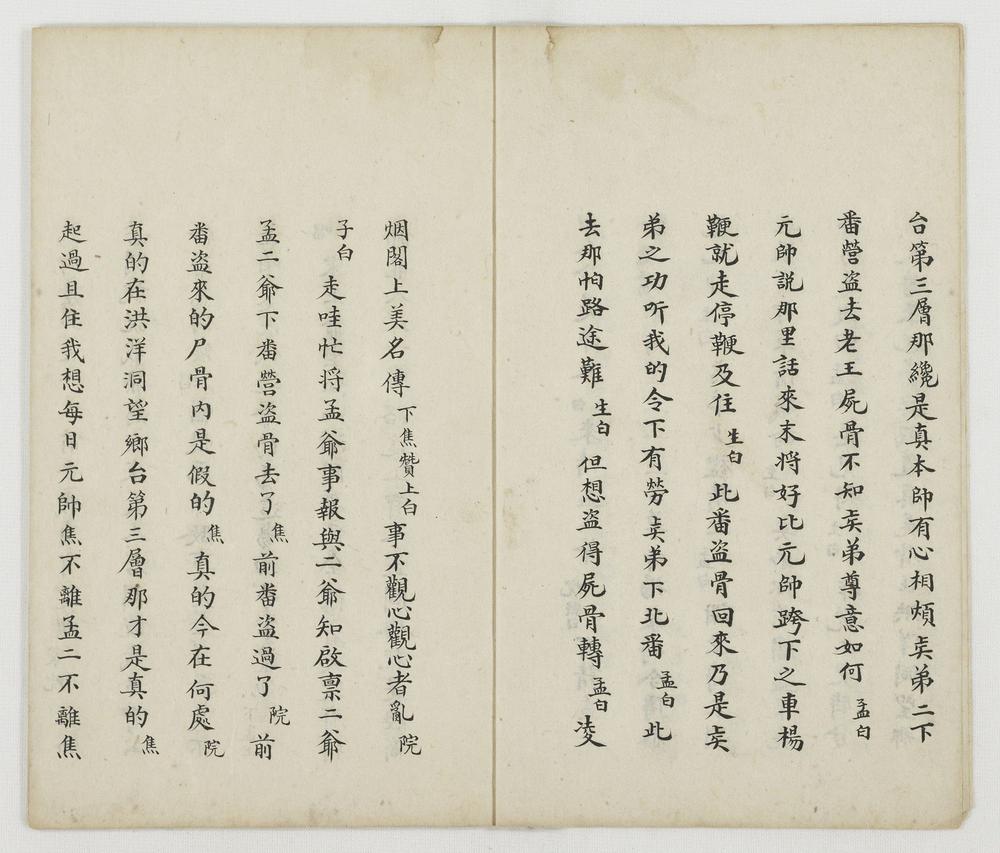 台第三層那纔是真本帥有心相煩矣弟二下
番營盗去老王屍骨不知矣弟尊意如何孟白
元帥説那里話來末将好比元帥跨下之車楊
鞭就走停鞭及住生白此番盗骨回來乃是矣
弟之功听我的令下有勞矣弟下北番孟白此
去那怕路途難生白但想盗得屍骨轉孟白凌
烟閣上美名傳下焦贊上白事不觀心觀心者亂院
子白走哇忙将孟爺事報與二爺知啟禀二爺
孟二爺下番營盗骨去了焦前番盗過了院前
番盗來的尸骨内是假的焦真的今在何處院
真的在洪洋洞望鄉台第三層那才是真的焦
起過且住我想每日元帥焦不離孟二不離焦